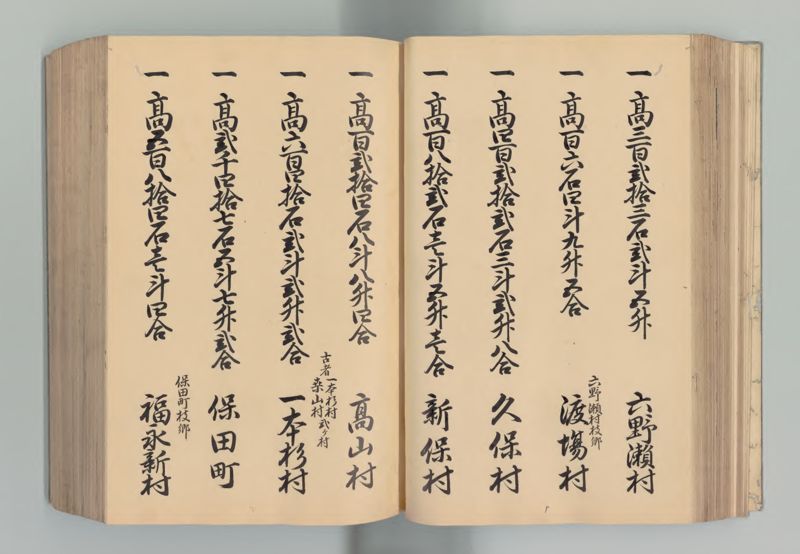 一 高三百弐拾三石弐斗五升 六野瀬村
一 高百六石四斗九升五合 六野瀬村枝郷 渡場村
一 高四百弐拾弐石三斗弐升八合 久保村
一 高百八拾弐石壱斗五升壱合 新保村
一 高百弐拾四石八斗八升四合 高山村
一 高六百四拾石弐斗弐升弐合 古者一本杉村 桑山村弐ヶ村 一本杉村
一 高弐千四拾七石五斗七升弐合 保田町
一 高五百八拾四石壱斗四合 保田町枝郷 福永新村